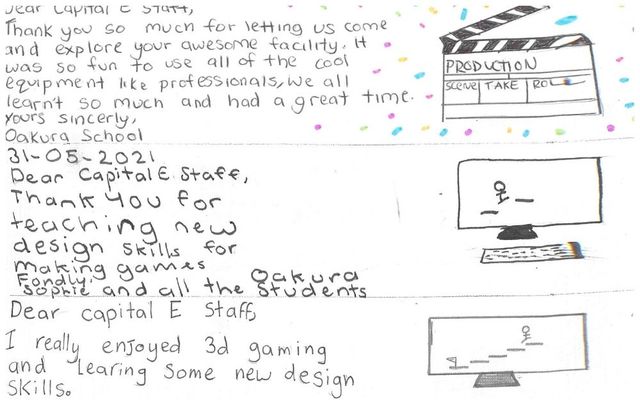 Dear Capital E Staff,
Thank you so much for letting us come
and explore your awesome facility. It
was so fun to use all of the cool
equipment like professionals, we all
learnt so much and had a great time.
Yours sincerely,
Oakura School
PRODUCTION
SCENE TAKE ROLL
31-05-2021
Dear Capital E Staff,
Thank You for
teaching new
design skills for
making games
Fondly,
Sophie and all the Oakura Students
Dear capital E Staff,
I really enjoyed 3d gaming
and learing some new design
skills.